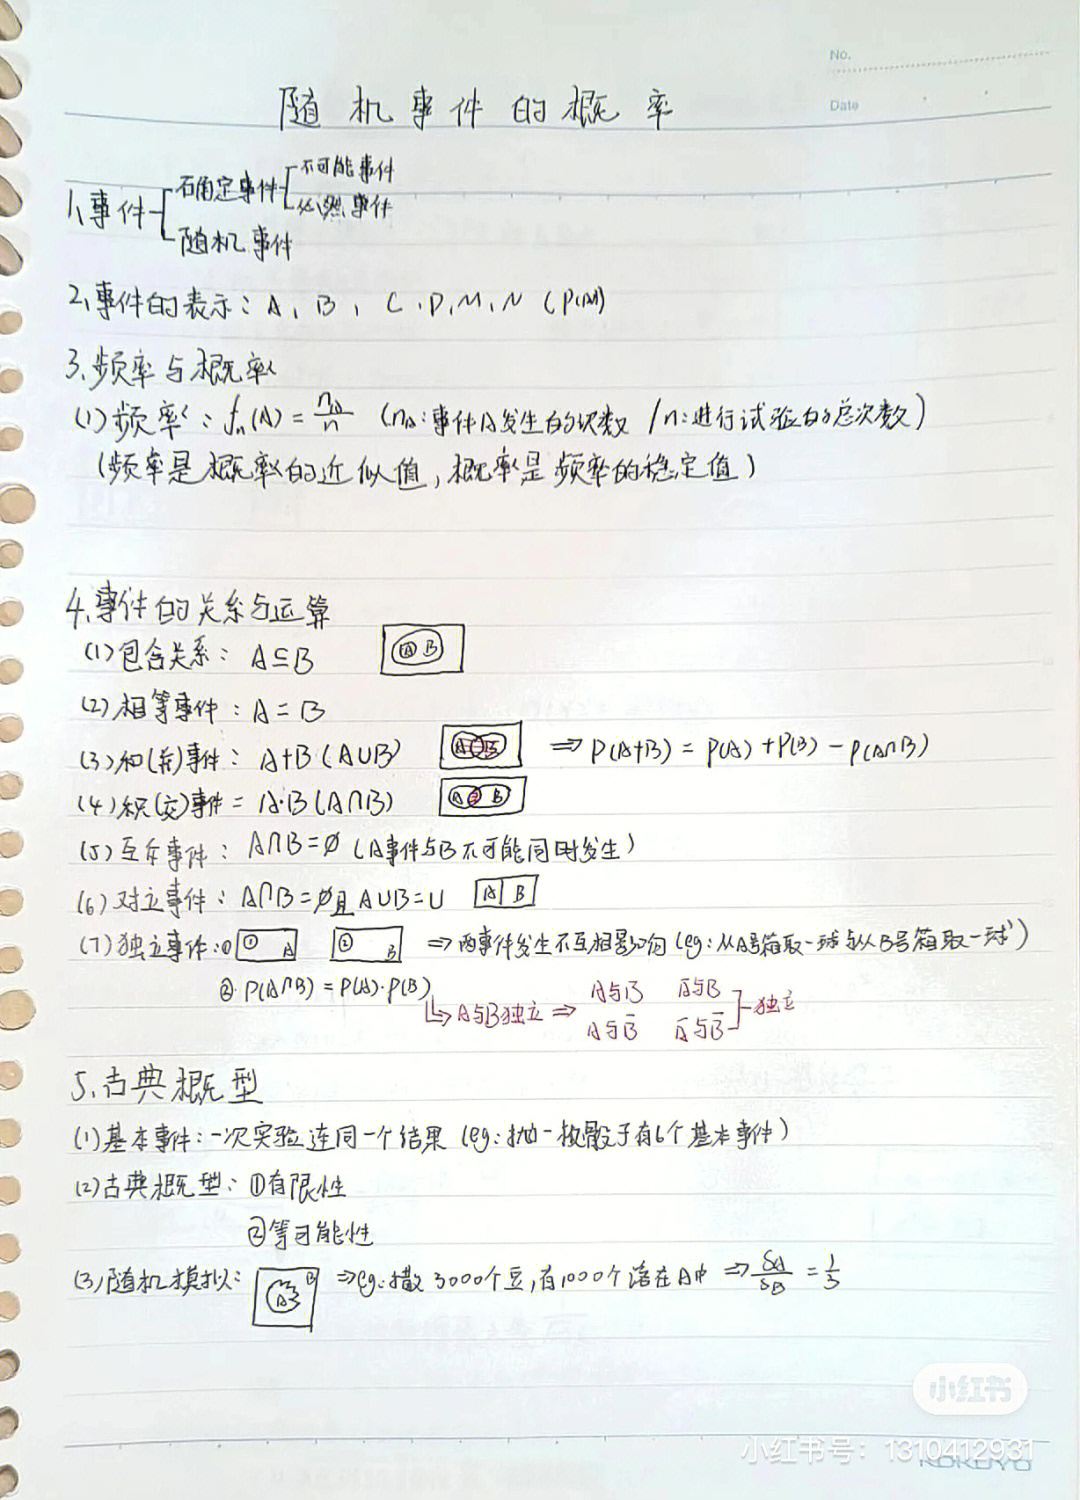 No.
Date
随机事件的概率
不可能事件
1、事件 确定事件
必然事件
随机事件
2、事件的表示：A、B、C、D、M、N (P(M))
3、频率与概率
(1)频率：fn(A)=nA/n (nA：事件A发生的次数 / n：进行试验的总次数)
(频率是概率的近似值，概率是频率的稳定值)
4、事件的关系与运算
(1)包含关系：A⊆B A B
(2)相等事件：A=B
(3)和(并)事件：A+B (A∪B) A B ⇒P(A+B)=P(A)+P(B)-P(A∩B)
(4)积(交)事件=A·B(A∩B) A B
(5)互斥事件：A∩B=∅ (A事件与B不可能同时发生)
(6)对立事件：A∩B=∅且A∪B=U A B
(7)独立事件：① ① A ② B ⇒两事件发生不互相影响 (eg：从A号箱取一球与从B号箱取一球)
②·P(A∩B)=P(A)·P(B)
↳A与B独立⇒ A与B Ā与B
A与B̄ Ā与B̄ 独立
5、古典概型
(1)基本事件：一次实验连同一个结果 (eg：抛一枚骰子有6个基本事件)
(2)古典概型：①有限性
②等可能性
(3)随机模拟： A B ⇒eg：撒3000个豆，有1000个落在A中 ⇒SA/SB=1/3
小红书
小红书号：1310412931
KOKUYO